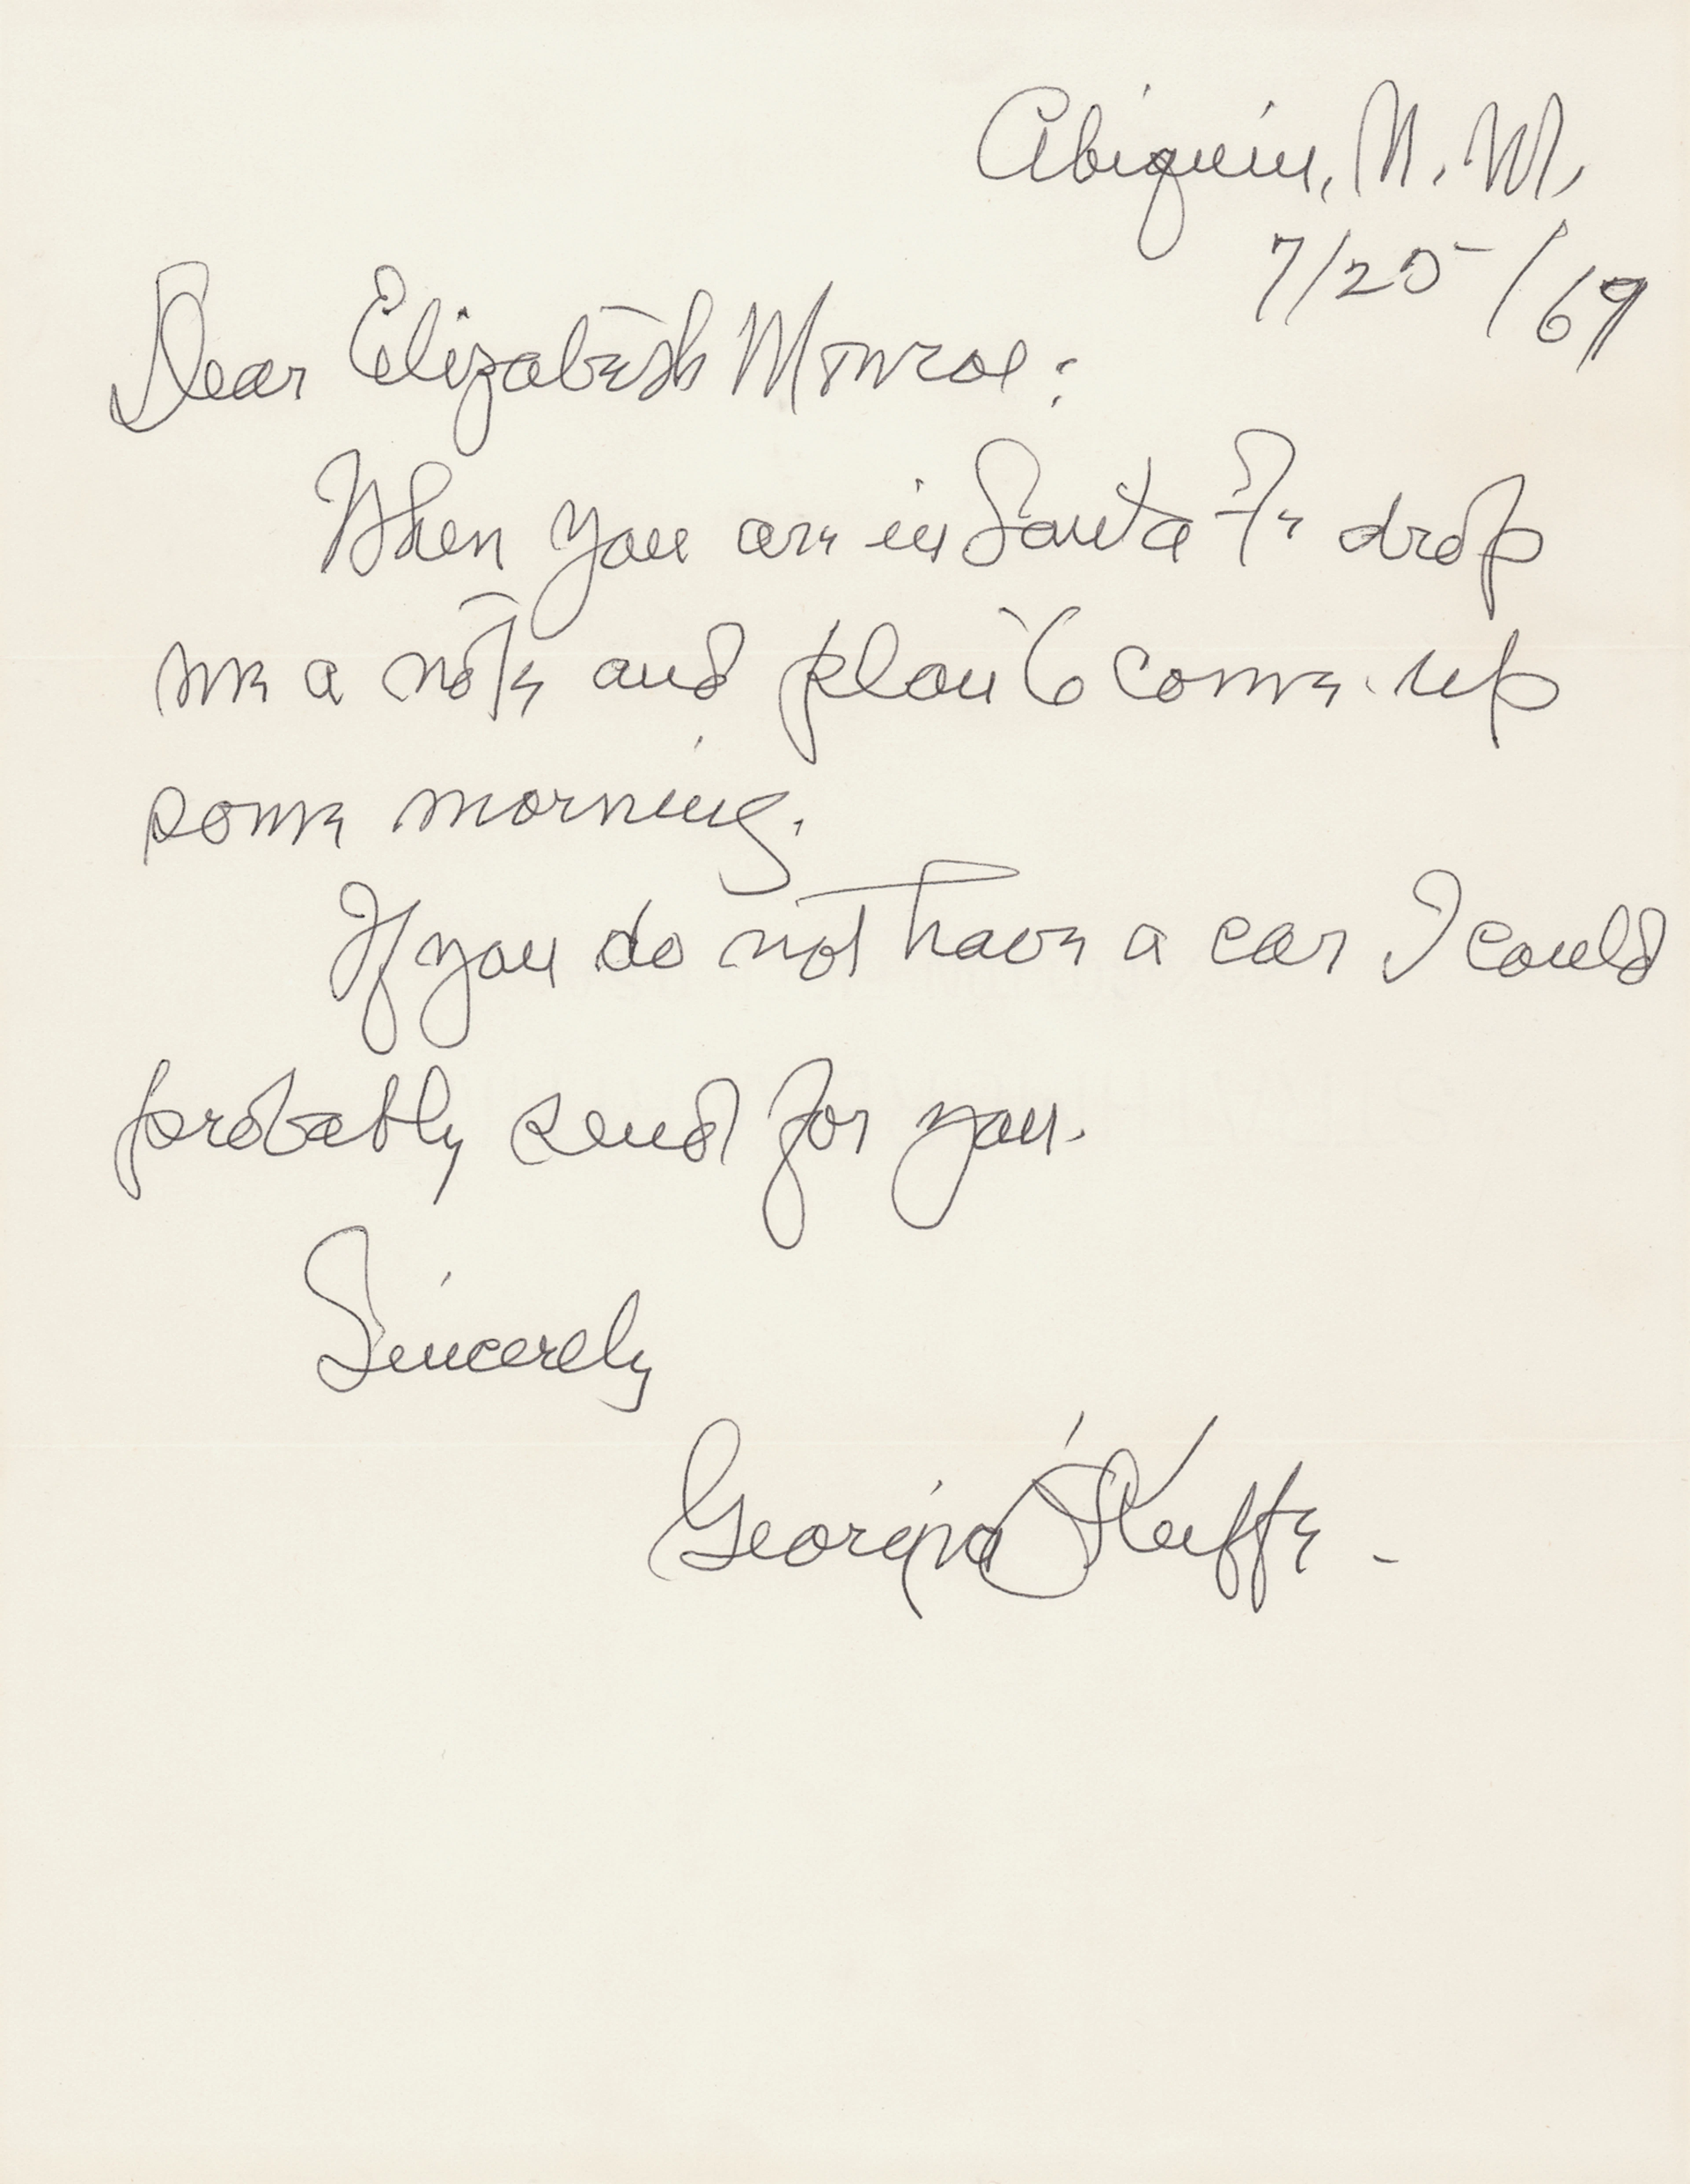 Abiquiu, N. M.
7/25/69
Dear Elizabeth Monroe:
When you are in Santa Fe drop
me a note and plan to come up
some morning.
If you do not have a car I could
probably send for you.
Sincerely
Georgia O'Keeffe -